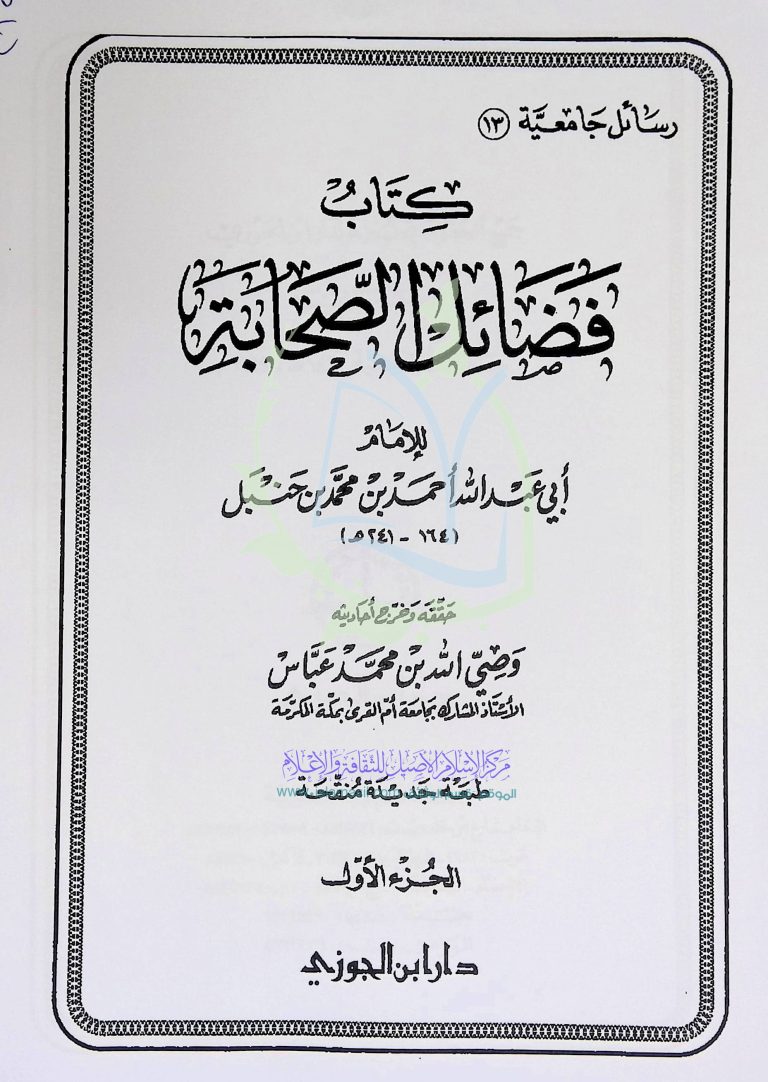 رسائل جامعية (١٣)
كِتَابُ
فَضَائِل الصَّحَابَةِ
للإمام
أبي عبد الله أحمد بن محمد بن حنبل
(١٦٤ - ٢٤١ هـ)
حققه وخرج أحاديثه
وصي الله بن محمد عباس
الأستاذ المشارك بجامعة أم القرى بمكة المكرمة
مركز الإسلام الأصيل للثقافة والإعلام
طبعة جديدة منقحة
الجزء الأول
دار ابن الجوزي